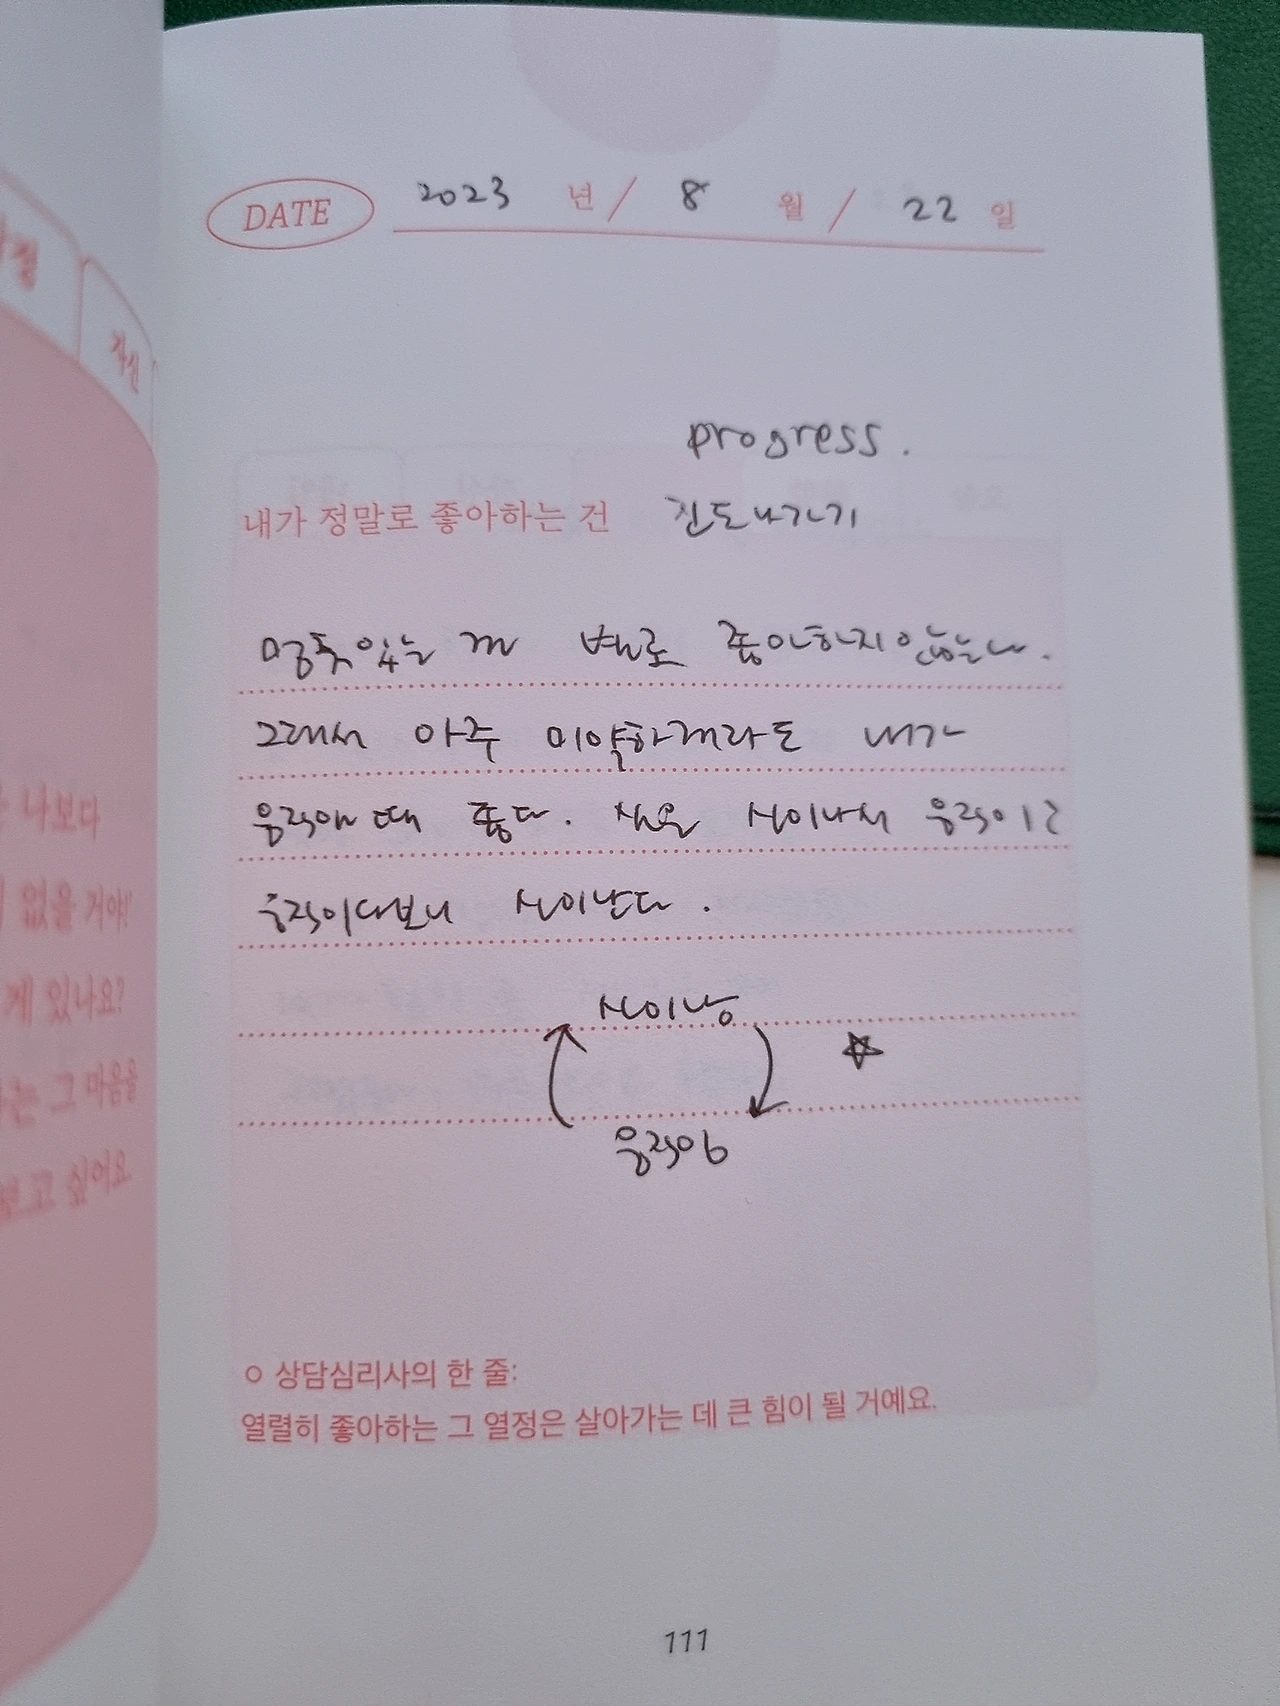 DATE 2023 년 / 8 월 / 22 일
progress.
내가 정말로 좋아하는 건 진도나가기
멈춰있는 걸 별로 좋아하지 않는다.
그래서 아주 미약하게라도 내가
움직일 때 좋다. 삶은 신이나서 움직이고
움직이다보니 신이난다.
신이남
움직임
상담심리사의 한 줄:
열렬히 좋아하는 그 열정은 살아가는 데 큰 힘이 될 거예요.
111
나보다
없을 거야!'
게 있나요?
그 마음을
보고 싶어요.